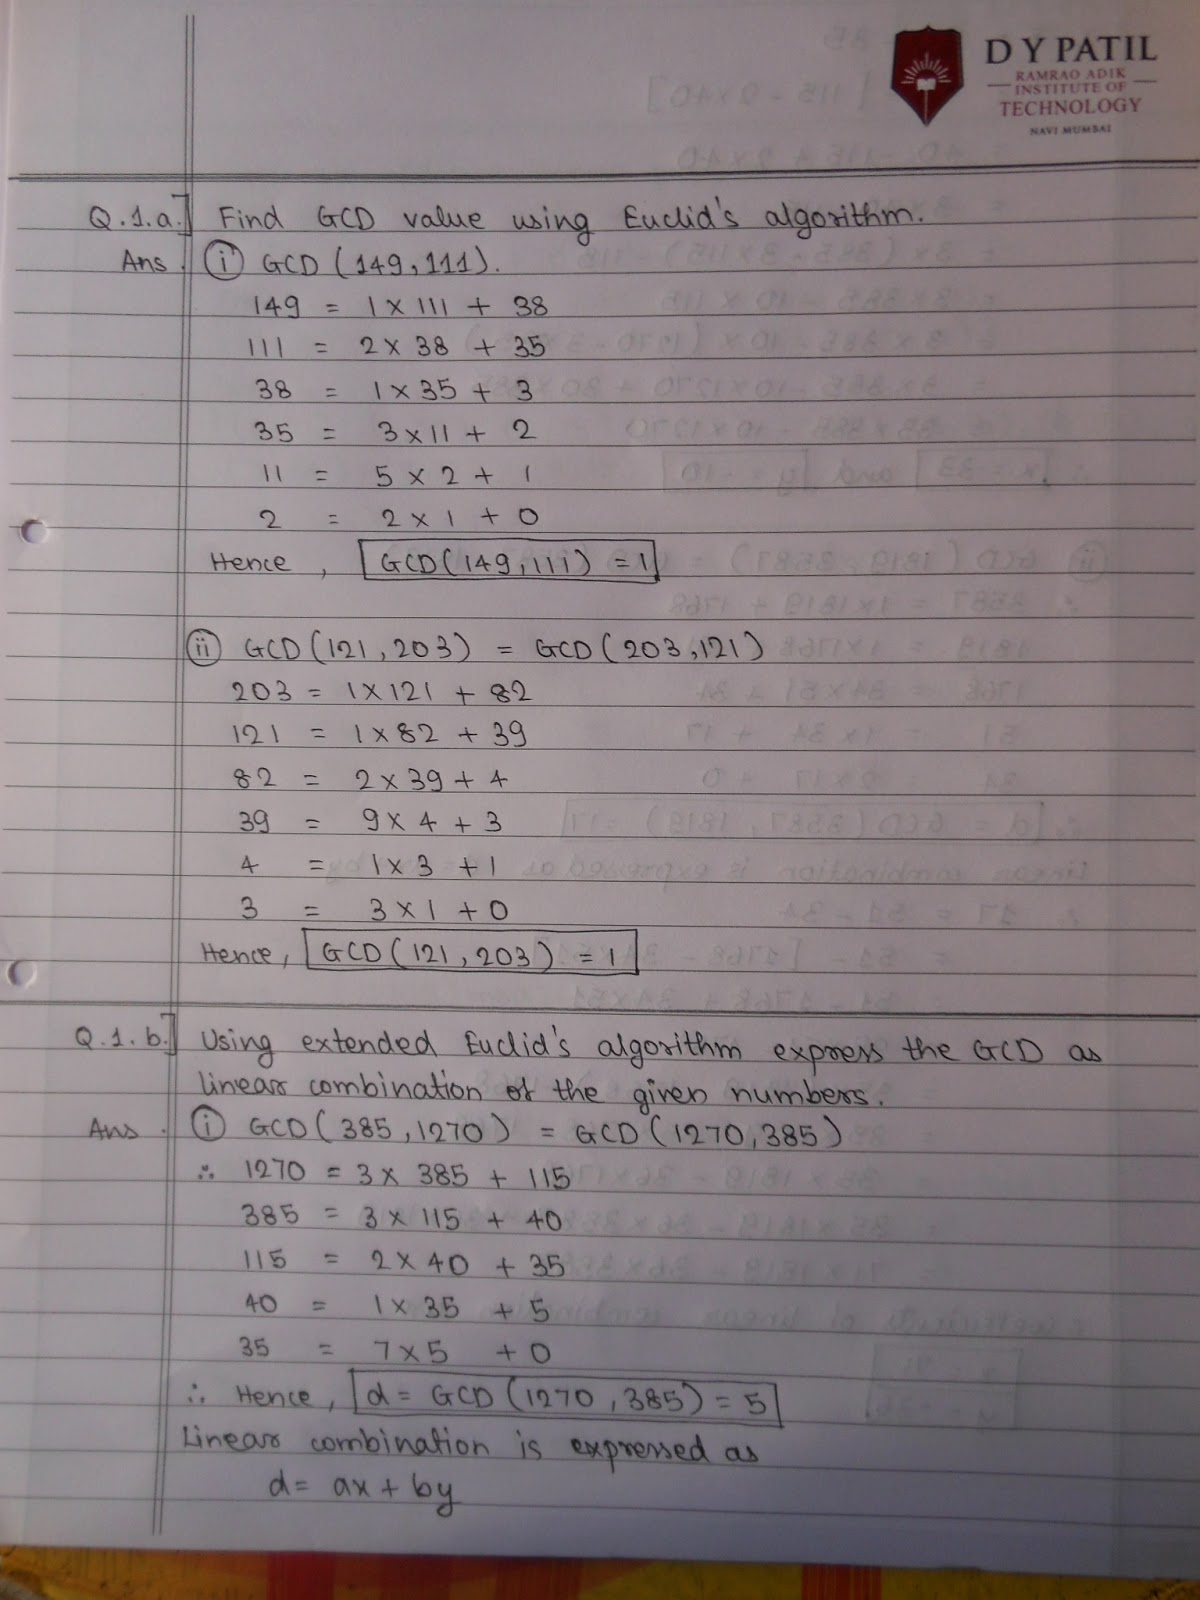 D Y PATIL
RAMRAO ADIK
INSTITUTE OF
TECHNOLOGY
NAVI MUMBAI
Q.1.a.] Find GCD value using Euclid's algorithm.
Ans. (i) GCD (149,111).
149 = 1 × 111 + 38
111 = 2 × 38 + 35
38 = 1 × 35 + 3
35 = 3 × 11 + 2
11 = 5 × 2 + 1
2 = 2 × 1 + 0
Hence, GCD(149,111) = 1
(ii) GCD (121,203) = GCD (203,121)
203 = 1 × 121 + 82
121 = 1 × 82 + 39
82 = 2 × 39 + 4
39 = 9 × 4 + 3
4 = 1 × 3 + 1
3 = 3 × 1 + 0
Hence, GCD(121,203) = 1
Q.1.b.] Using extended Euclid's algorithm express the GCD as
linear combination of the given numbers.
Ans. (i) GCD (385,1270) = GCD (1270,385)
∴ 1270 = 3 × 385 + 115
385 = 3 × 115 + 40
115 = 2 × 40 + 35
40 = 1 × 35 + 5
35 = 7 × 5 + 0
∴ Hence, d = GCD (1270,385) = 5
Linear combination is expressed as
d = ax + by